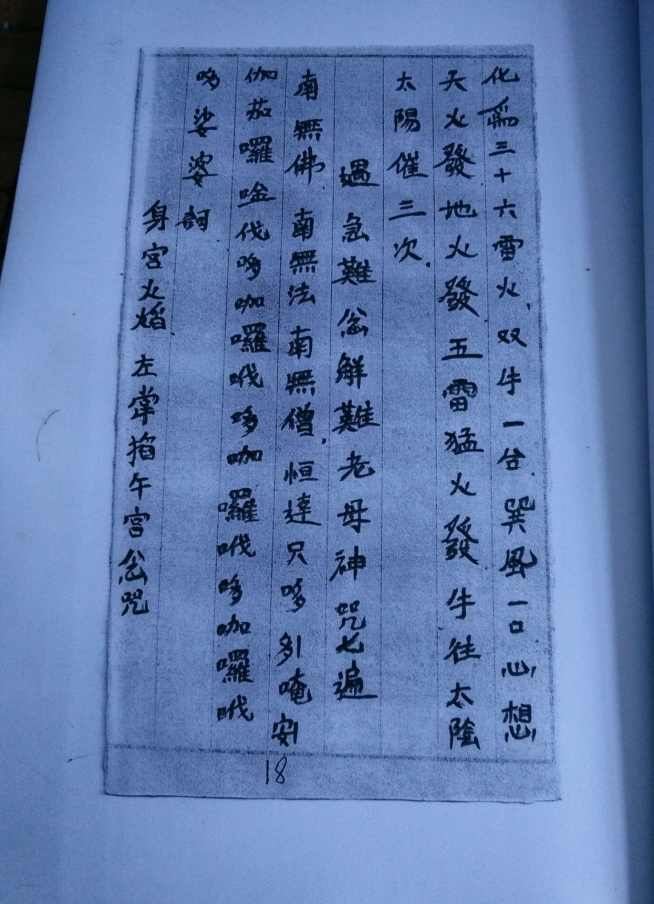 化爲三十六雷火，双牛一台，巽風一口，心想
天火發地火發五雷猛火發牛往太陰
太陽催三次．
遇急難念解難老母神咒七遍
南無佛 南無法 南無僧，恒達只哆 多唵
伽茄囉唫伐哆咖囉哦哆咖囉哦哆咖囉哦
哆娑婆訶
身宮火焰 左掌掐午宮念咒
18